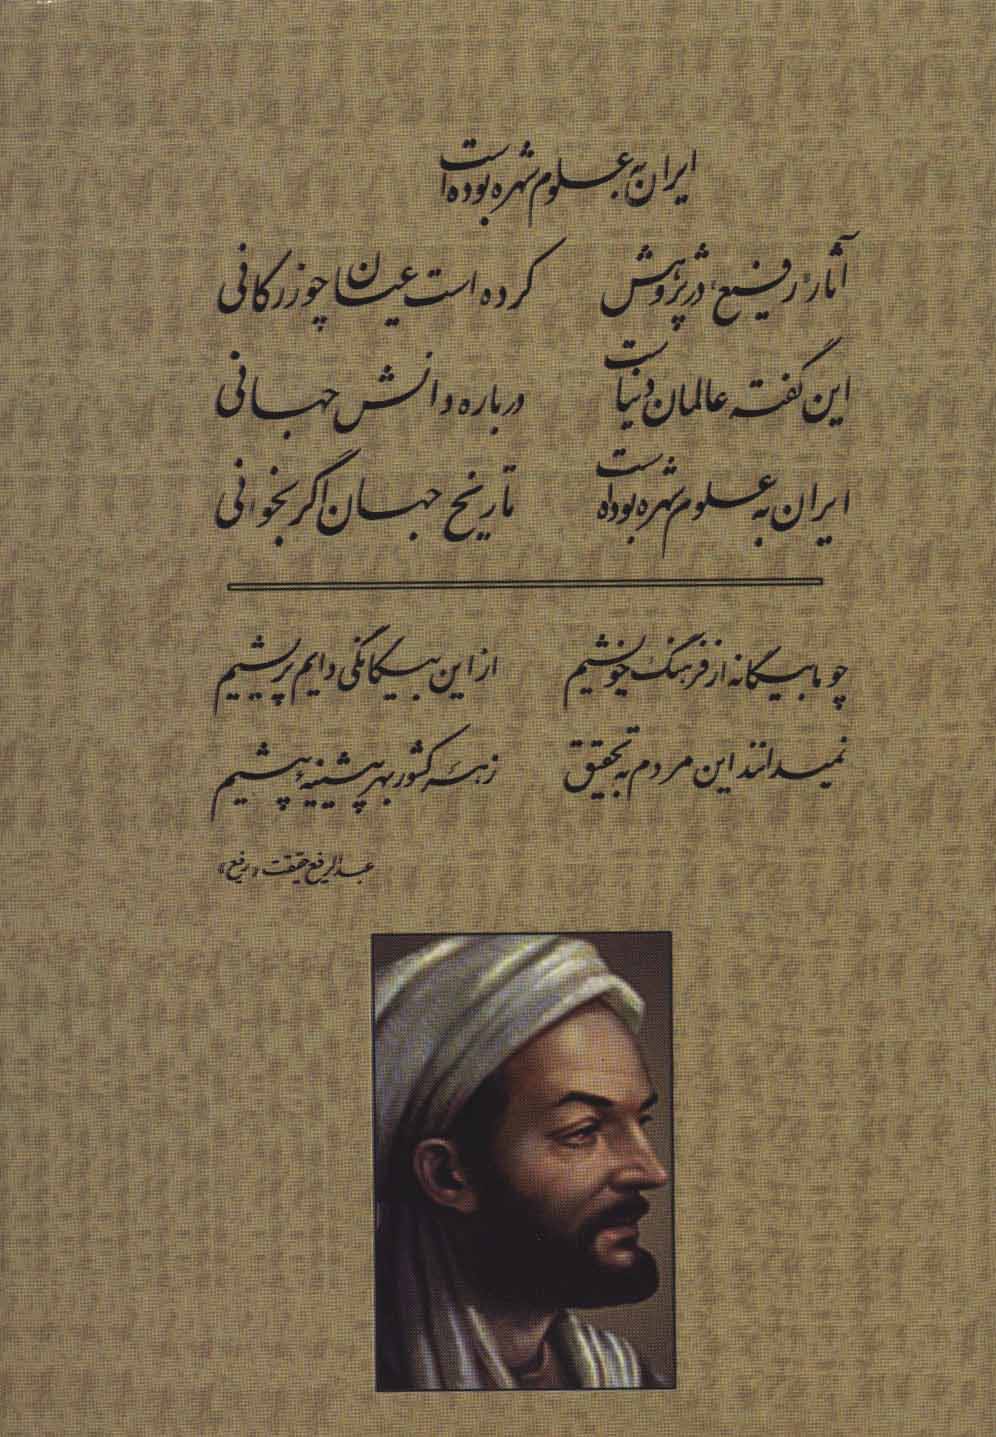 ایران به علوم شهره بوده است
آثار «رفیع» در پژوهش کرده است عیان چو زرکانی
این گفته عالمان دنیاست درباره دانش جهانی
ایران به علوم شهره بوده است تاریخ جهان اگر بخوانی
چو ما بیگانه از فرهنگ خویشیم از این بیگانگی دایم پریشیم
نمیدانند این مردم به تحقیق ز هر کشور بهر پیشینه پیشیم
عبدالرفیع حقیقت «رفیع»